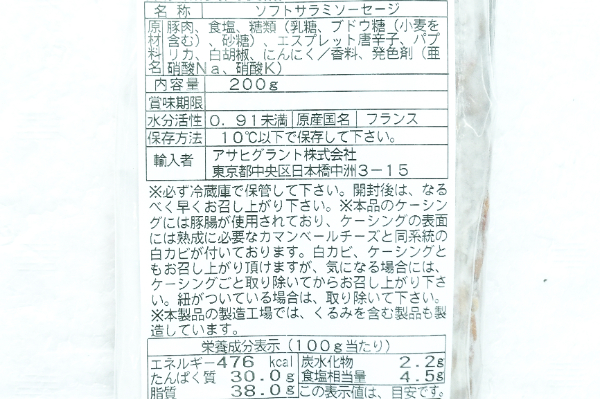 名 称 ソフトサラミソーセージ
原材料名 豚肉、食塩、糖類（乳糖、ブドウ糖（小麦を
含む）、砂糖）、エスプレット唐辛子、パプ
リカ、白胡椒、にんにく／香料、発色剤（亜
硝酸Ｎａ、硝酸Ｋ）
内容量 200g
賞味期限
水分活性 0．91未満 原産国名 フランス
保存方法 10℃以下で保存して下さい。
輸入者 アサヒグラント株式会社
東京都中央区日本橋中洲3－15
※必ず冷蔵庫で保管して下さい。開封後は、なる
べく早くお召し上がり下さい。※本品のケーシン
グには豚腸が使用されており、ケーシングの表面
には熟成に必要なカマンベールチーズと同系統の
白カビが付いております。白カビ、ケーシングと
もお召し上がり頂けますが、気になる場合には、
ケーシングごと取り除いてからお召し上がり下さ
い。紐がついている場合は、取り除いて下さい。
※本製品の製造工場では、くるみを含む製品も製
造しています。
栄養成分表示（100g当たり）
エネルギー 476 kcal 炭水化物 2.2g
たんぱく質 30.0g 食塩相当量 4.5g
脂質 38.0g この表示値は、目安です。